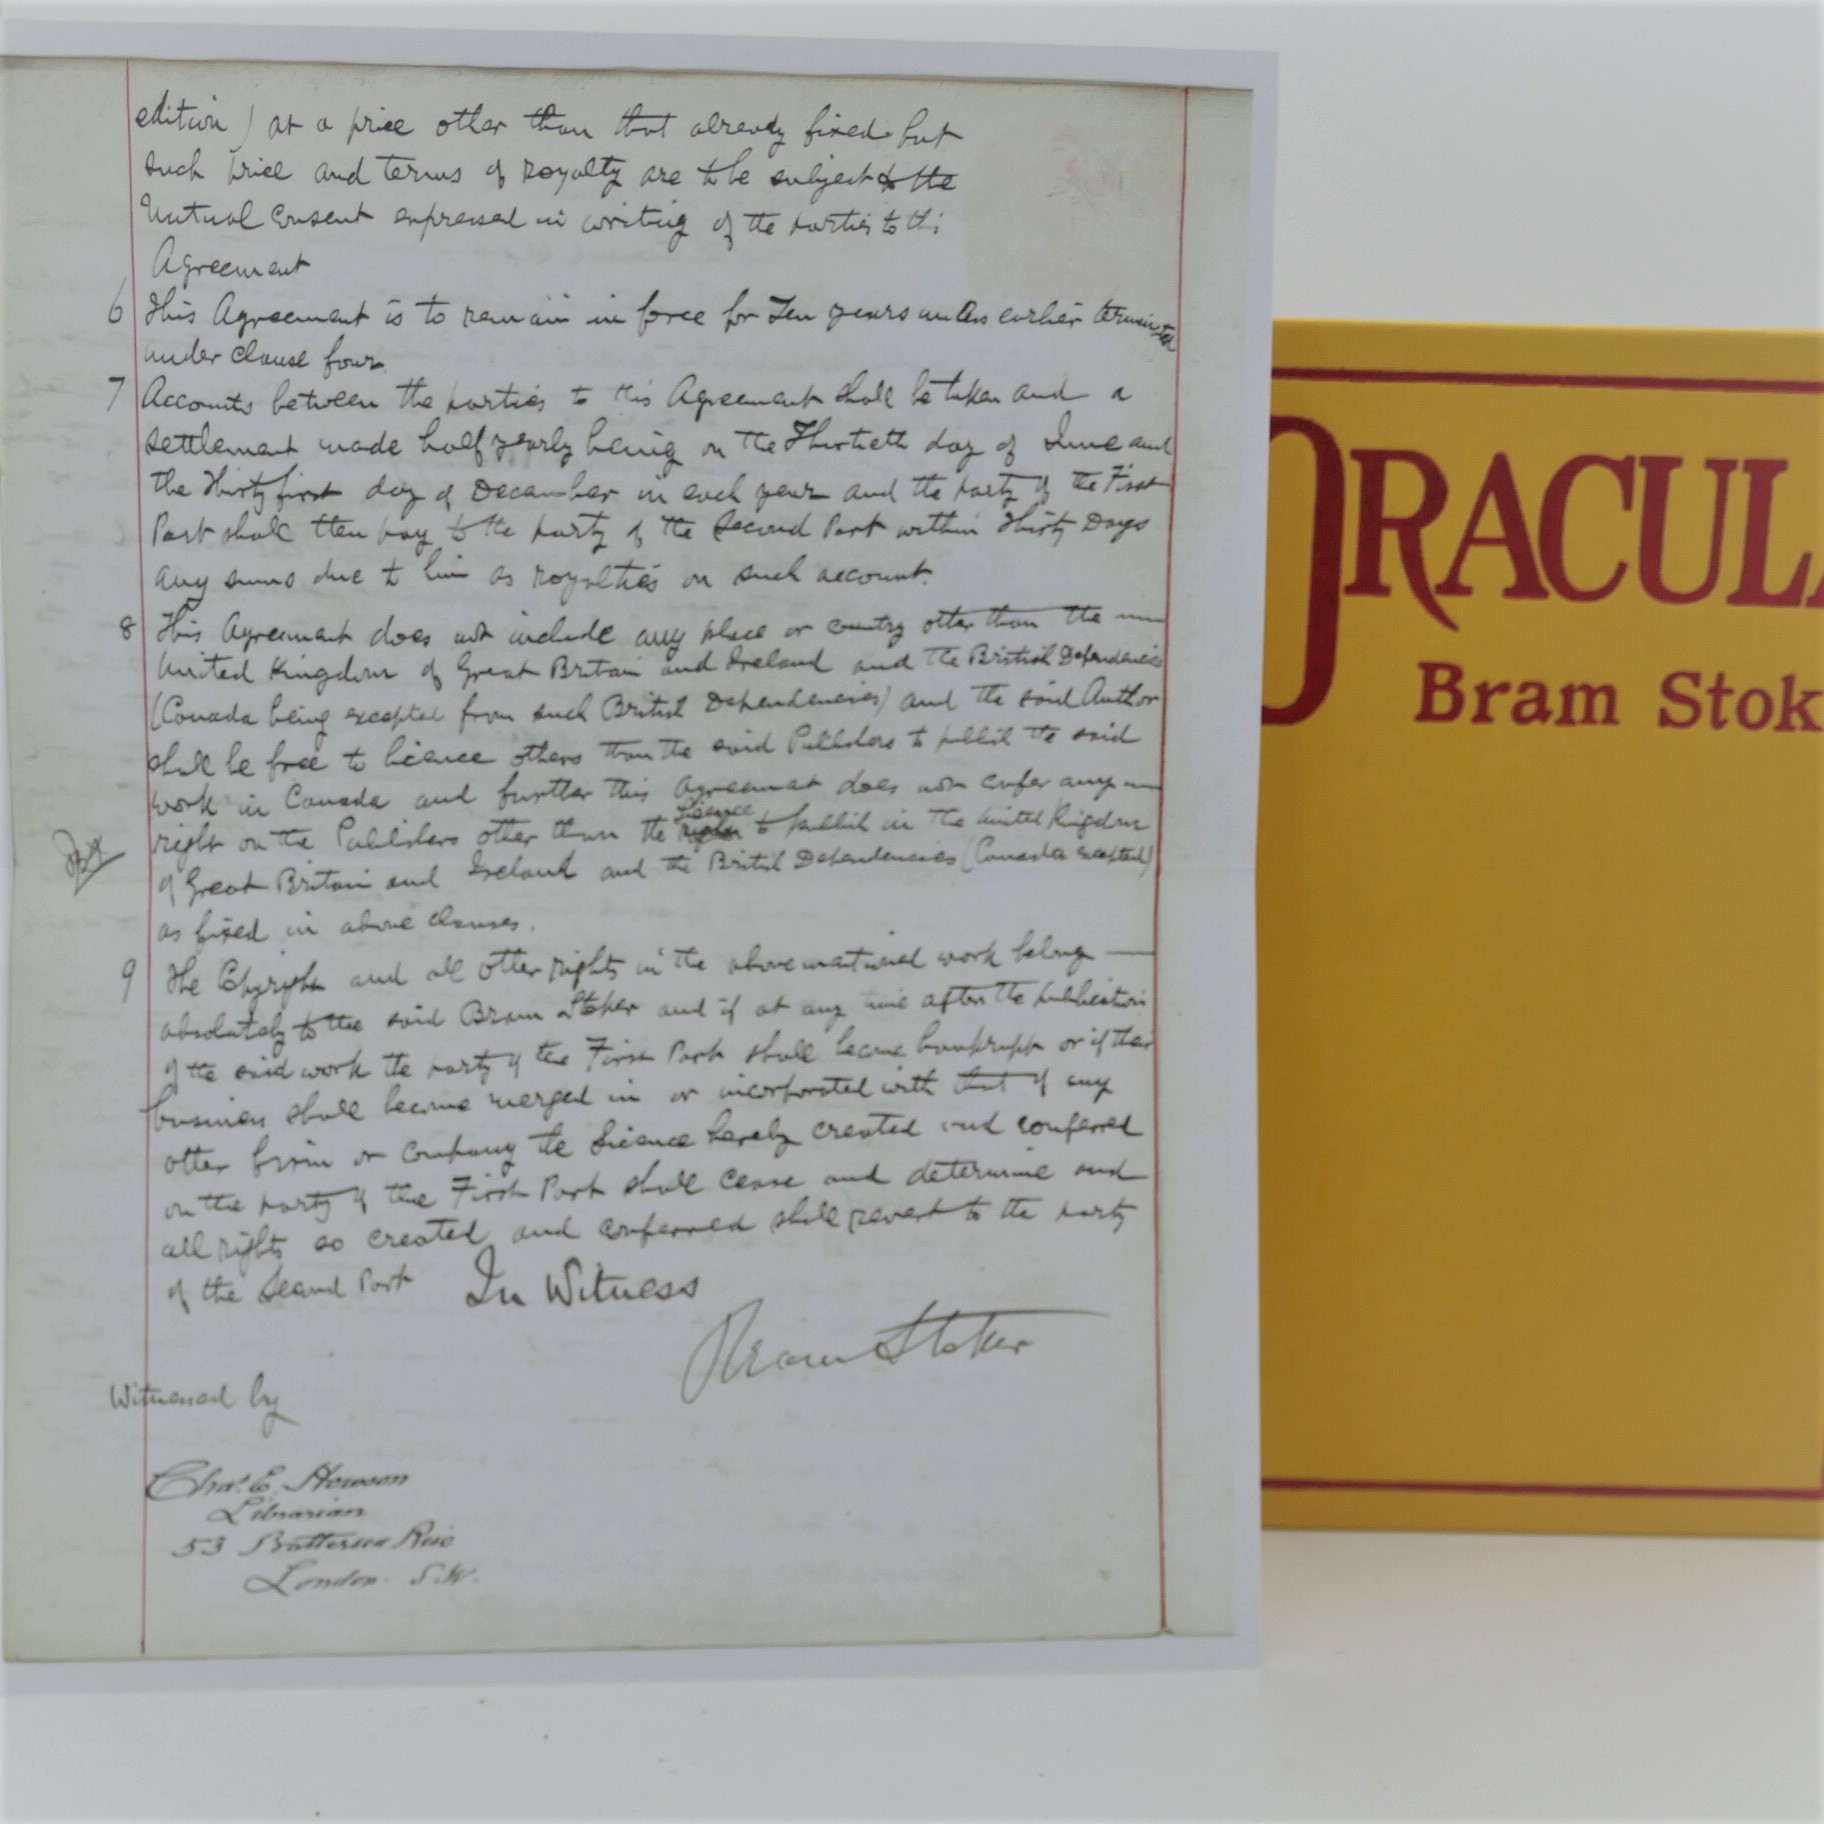 edition) at a price other than that already fixed but
such price and terms of royalty are to be subject to the
Mutual Consent expressed in writing of the parties to this
Agreement
6 This Agreement is to remain in force for Ten years unless earlier terminated
under Clause four
7 Accounts between the parties to this Agreement shall be taken and a
settlement made half yearly being on the Thirtieth day of June and
the Thirty first day of December in each year and the party of the First
Part shall then pay to the party of the Second Part within Thirty Days
any sums due to him as royalties on such account.
8 This Agreement does not include any place or country other than the
United Kingdom of Great Britain and Ireland and the British Dependencies
(Canada being excepted from such British Dependencies) and the said Author
shall be free to licence others than the said Publishers to publish the said
work in Canada and further this Agreement does not confer any
licence
right on the Publishers other than the right to publish in the United Kingdom
of Great Britain and Ireland and the British Dependencies (Canada excepted)
as fixed in above clauses.
9 The Copyright and all other rights in the above mentioned work belong
absolutely to the said Bram Stoker and if at any time after the publication
of the said work the party of the First Part shall become bankrupt or if their
business shall become merged in or incorporated with that of any
other firm or Company the licence hereby created and conferred
on the party of the First Part shall cease and determine and
all rights so created and conferred shall revert to the party
of the Second Part In Witness
Bram Stoker
Witnessed by
Chas. E. Howson
Librarian
53 Battersea Rise
London. S.W.
DRACULA
Bram Stok